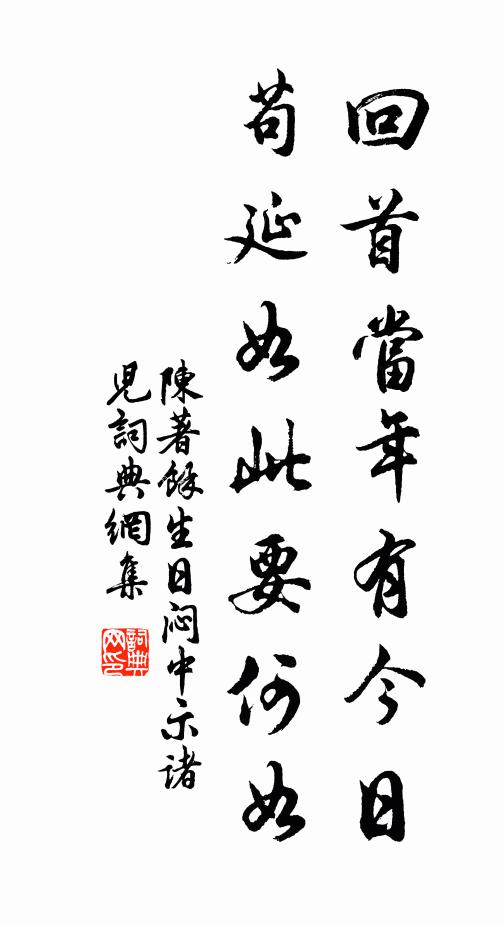 回首當年有今日
苟延如此要何如
陳著餘生日闷中示诸
児詞典網集
詞典
网印